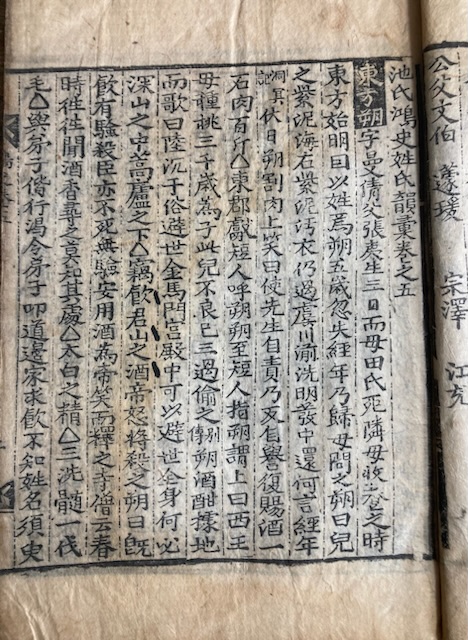 公父文伯 蘧瑗 宗澤 江充
池氏鴻史姓氏韻彙卷之五
東方朔 字曼倩父張夷生三日而母田氏死隣母收養之時
東方始明曰以姓焉朔五歲忽失經年乃歸母問之朔曰兒
之紫泥海有紫泥汚衣仍過虞川湔洗明發中還何言經年
洞冥記 伏日朔割肉上笑曰使先生自責乃反自譽復賜酒
石肉百斤△東郡獻短人呼朔朔至短人指朔謂上曰西王
母種桃三千歲爲子此兒不良已三過偷之 列傳 朔酒酣據地
而歌曰陸沉于俗避世金馬門宮殿中可以避世全身何必
深山之中蒿廬之下△竊飮君山之酒帝怒將殺之朔曰旣
飮有驗殺臣亦不死無驗安用酒爲帝笑而釋之寺僧云春
時往往聞酒香尋之莫知其處△太白之精△三洗髓一伐
毛△與弟子偕行渴令弟子叩道邊家求飮不知姓名須臾